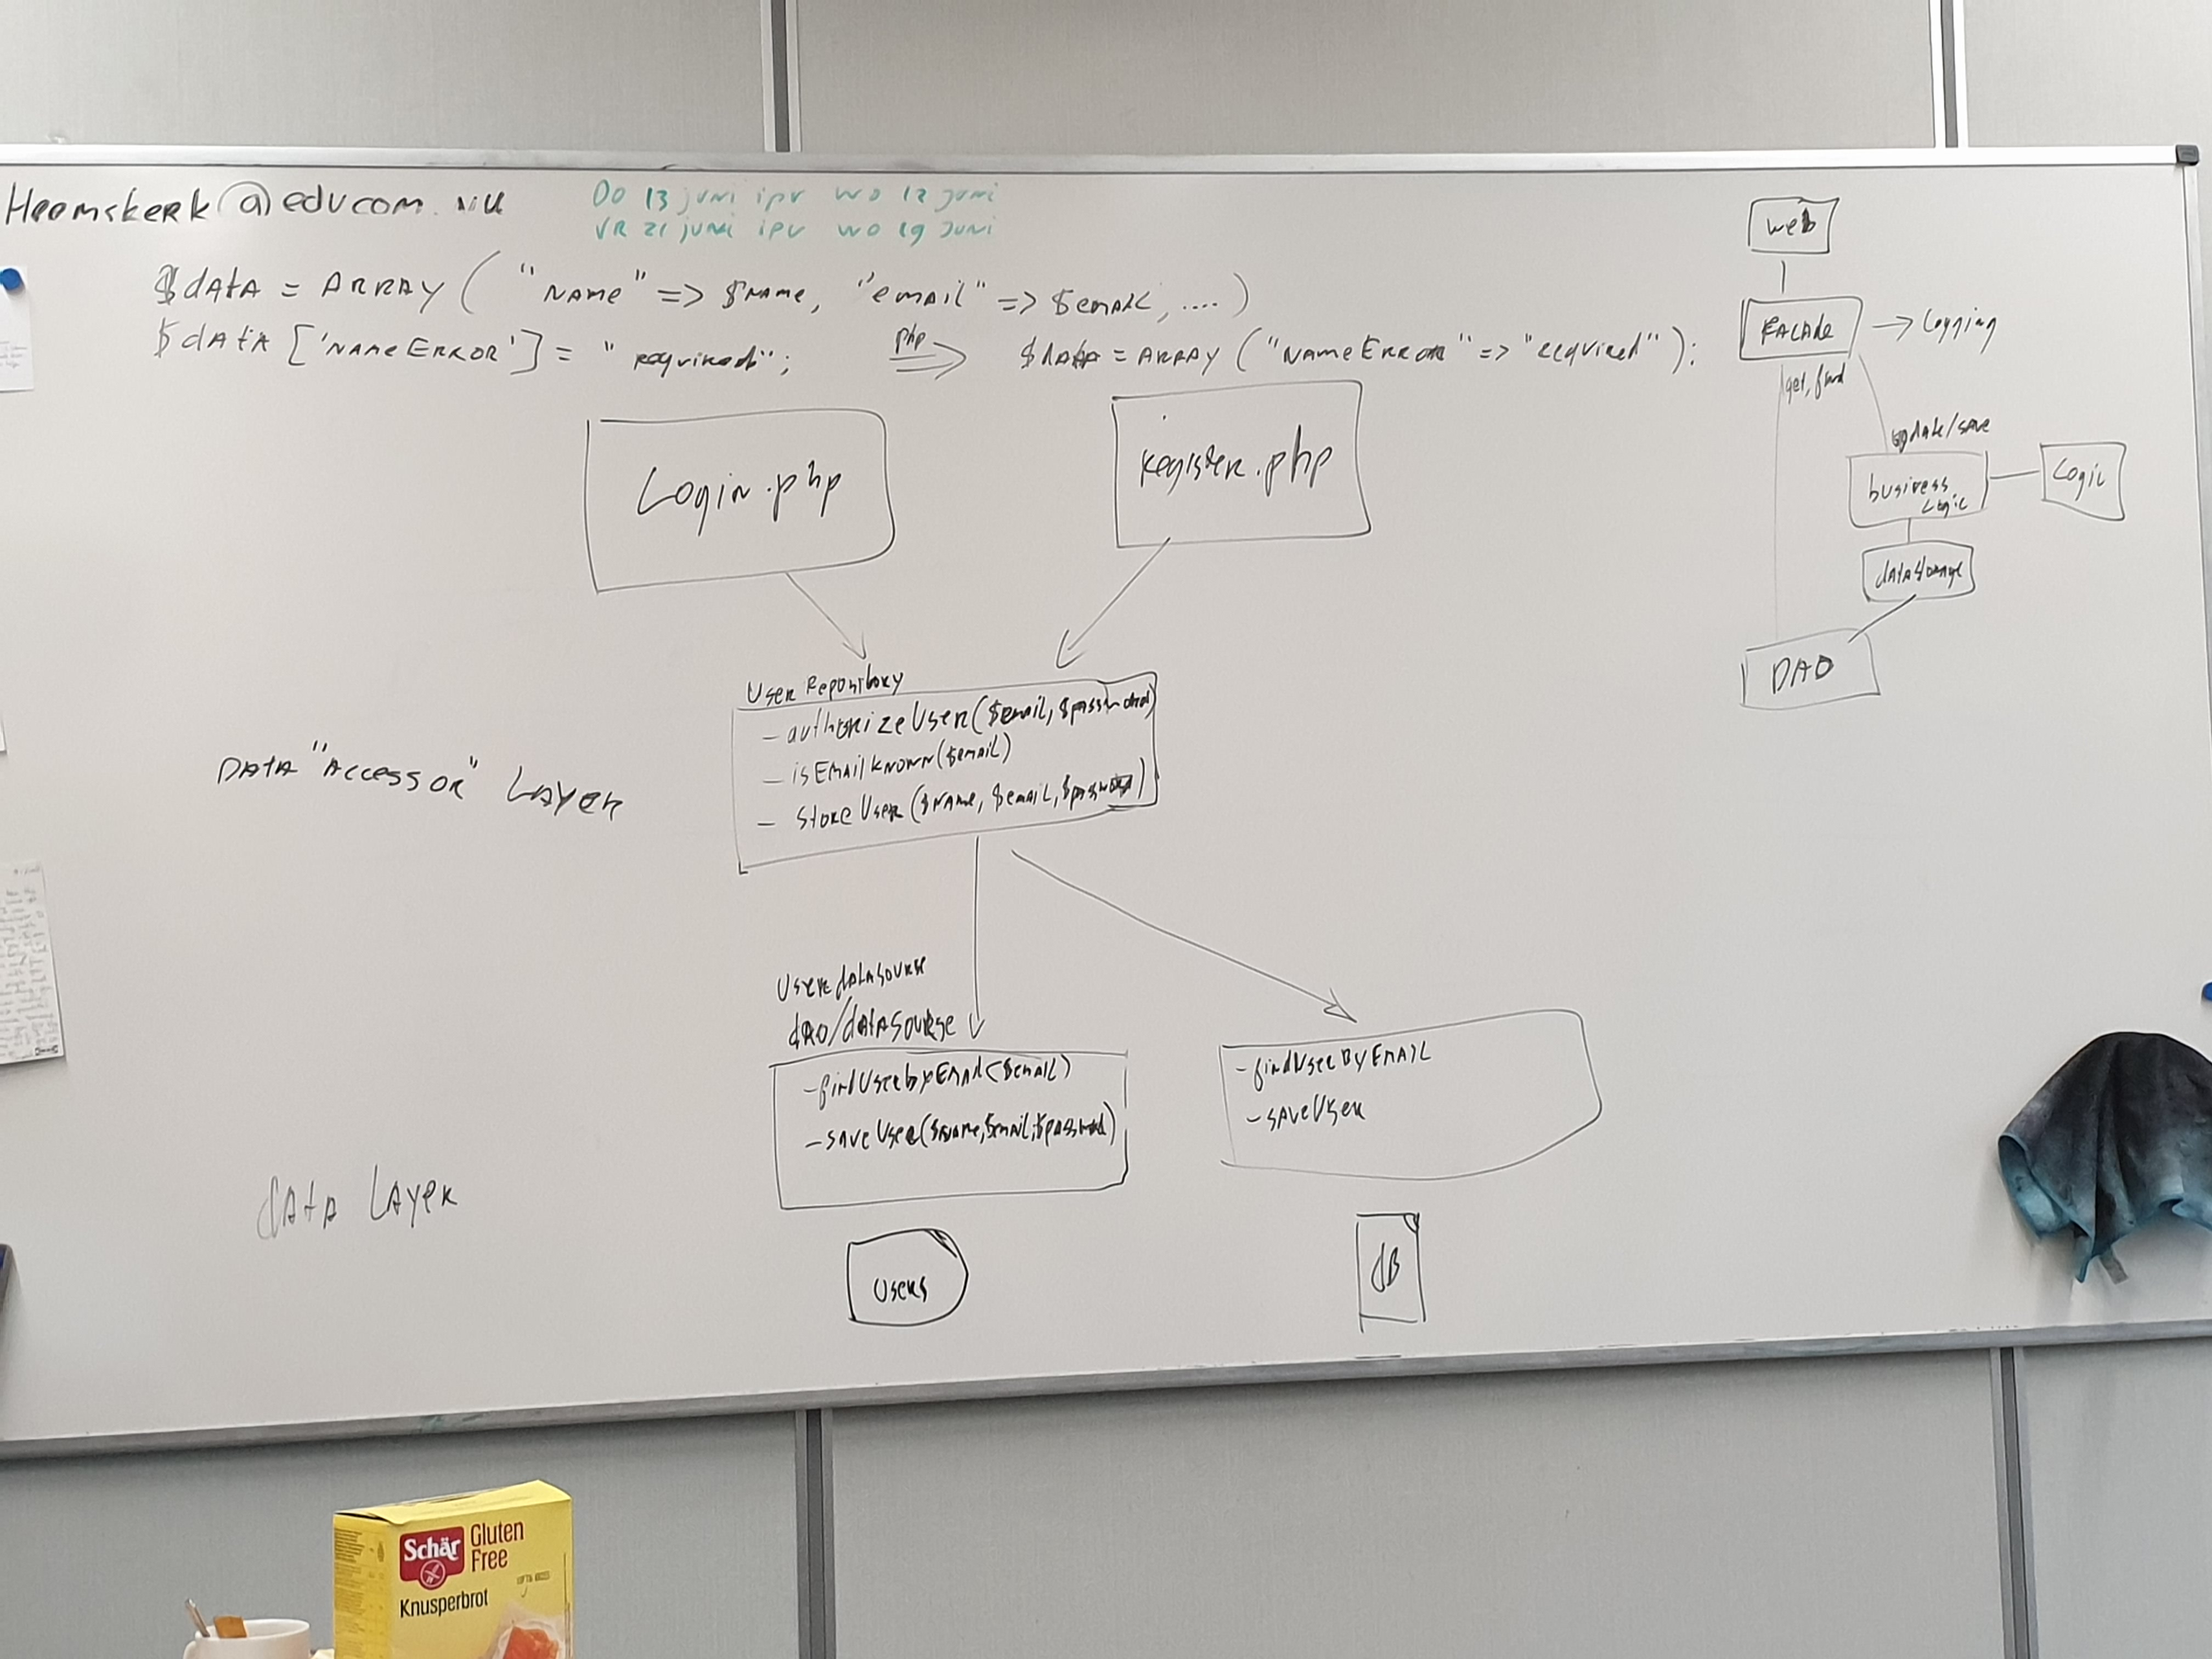 Heemskerk@educom.nu
DO 13 juni ipv wo 12 juni
VR 21 juni ipv wo 19 juni
$data = ARRAY ( "name" => $name, "email" => $email, .... )
$data ['nameError'] = "required";
php
$data = ARRAY ("nameError" => "required");
Login.php
Register.php
User Repository
- authorizeUser($email, $password)
- isEmailKnown($email)
- storeUser($name, $email, $password)
DATA "Accessor" Layer
User datasourse
dAO/datasourse
- findUserbyEmail($email)
- saveUser($name, $email, $password)
- findUserByEmail
- saveUser
data Layer
users
dB
web
FACAde
Logging
get, find
update/save
business
Logic
Logic
datastorage
DAO
Schär
Gluten
Free
Knusperbrot